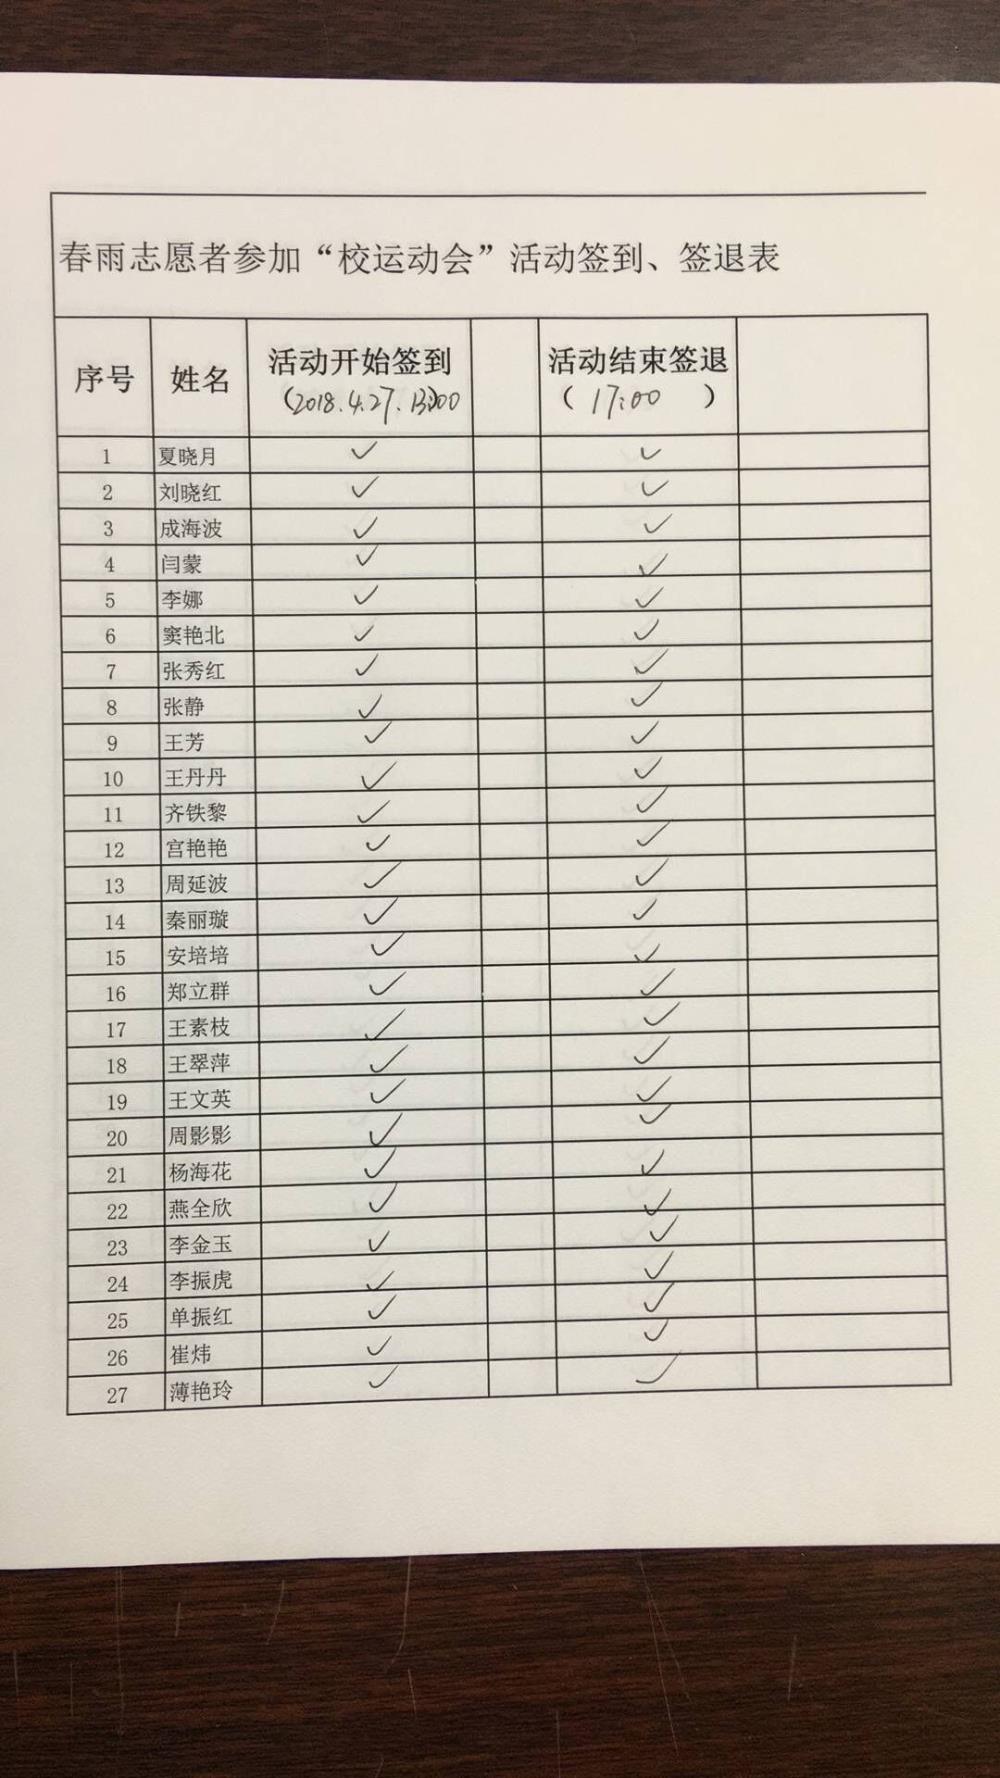 春雨志愿者参加“校运动会”活动签到、签退表
序号 姓名 活动开始签到 活动结束签退
（2018.4.27. 13:00 （ 17:00 ）
1 夏晓月 ✓ ✓
2 刘晓红 ✓ ✓
3 成海波 ✓ ✓
4 闫蒙 ✓ ✓
5 李娜 ✓ ✓
6 窦艳北 ✓ ✓
7 张秀红 ✓ ✓
8 张静 ✓ ✓
9 王芳 ✓ ✓
10 王丹丹 ✓ ✓
11 齐铁黎 ✓ ✓
12 宫艳艳 ✓ ✓
13 周延波 ✓ ✓
14 秦丽璇 ✓ ✓
15 安培培 ✓ ✓
16 郑立群 ✓ ✓
17 王素枝 ✓ ✓
18 王翠萍 ✓ ✓
19 王文英 ✓ ✓
20 周影影 ✓ ✓
21 杨海花 ✓ ✓
22 燕全欣 ✓ ✓
23 李金玉 ✓ ✓
24 李振虎 ✓ ✓
25 单振红 ✓ ✓
26 崔炜 ✓ ✓
27 薄艳玲 ✓ ✓